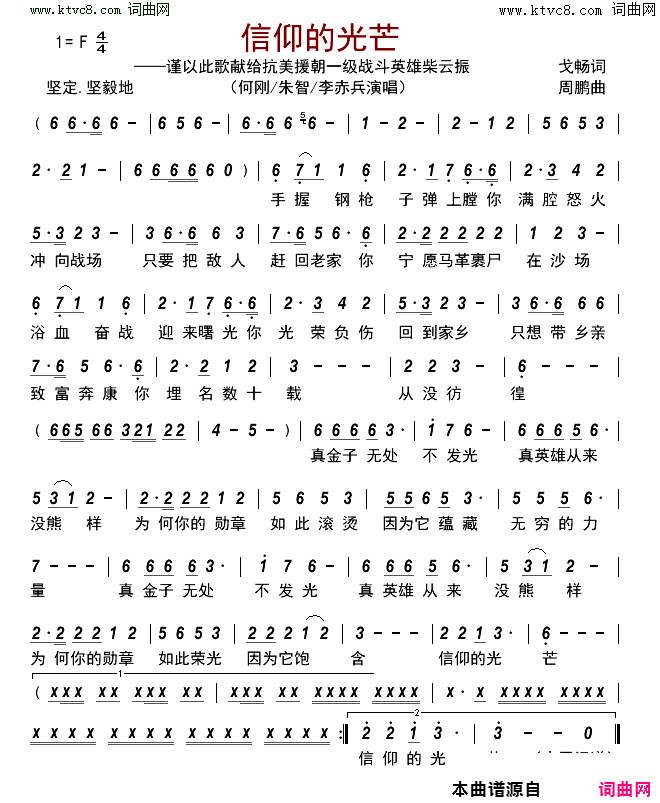 www.ktvc8.com 词曲网 www.ktvc8.com 词曲网
1= F 4/4 信仰的光芒
——谨以此歌献给抗美援朝一级战斗英雄柴云振 戈畅词
坚定.坚毅地 (何刚/朱智/李赤兵演唱) 周鹏曲
( 6 6· 6 6 - | 6 5 6 - | 6· 6 6 5 6 - | 2· 2 3 2 - | 2 - 1 2 | 5 6 5 3 |
2· 2 1 - | 6 6 6 6 6 6 0 ) | 6 7 1 1 6 | 2· 1 7 6· 6 | 2· 3 4 2 |
手 握 钢 枪 子 弹 上 膛 你 满 腔 怒 火
5· 3 2 3 - | 3 6· 6 6 3 | 7· 6 5 6· 6 | 2· 2 2 2 2 2 | 1 2 3 - |
冲 向 战 场 只 要 把 敌 人 赶 回 老 家 你 宁 愿 马 革 裹 尸 在 沙 场
6 7 1 1 6 | 2· 1 7 6· 6 | 2· 3 4 2 | 5· 3 2 3 - | 3 6· 6 6 |
浴 血 奋 战 迎 来 曙 光 你 光 荣 负 伤 回 到 家 乡 只 想 带 乡 亲
7· 6 5 6· 6 | 2· 2 2 1 2 | 3 - - - | 2 2 3 - | 6 - - - |
致 富 奔 康 你 埋 名 数 十 载 从 没 彷 徨
( 6 6 5 6 6 3 2 1 2 2 | 4 - 5 - ) | 6 6 6 6 3· | 1 7 6 - | 6 6 6 5 6· |
真金子 无处 不 发 光 真英雄从来
5 3 1 2 - | 2· 2 2 2 1 2 | 5 6 5 3 | 2 2 3 1 2 | 5 5 5 6· |
没 熊 样 为 何 你 的 勋 章 如 此 滚 烫 因为它 蕴 藏 无 穷 的 力
7 - - - | 6 6 6 6 3· | 1 7 6 - | 6 6 6 5 6· | 5 3 1 2 - |
量 真 金子 无处 不 发 光 真 英雄 从 来 没 熊 样
2· 2 2 2 1 2 | 5 6 5 3 | 2 2 2 1 2 | 3 - - - | 2 2 1 3· | 6 - - - |
为 何你的勋章 如此荣光 因为它饱 含 信仰的光 芒
1
( X X X X X X X X | X X X X X X X X | X· X X X | X X X X X X |
X X X X X X X X X X X X :‖ 2 2 1 3· | 3 - - 0 ‖
2
信 仰 的 光
本曲谱源自 词曲网